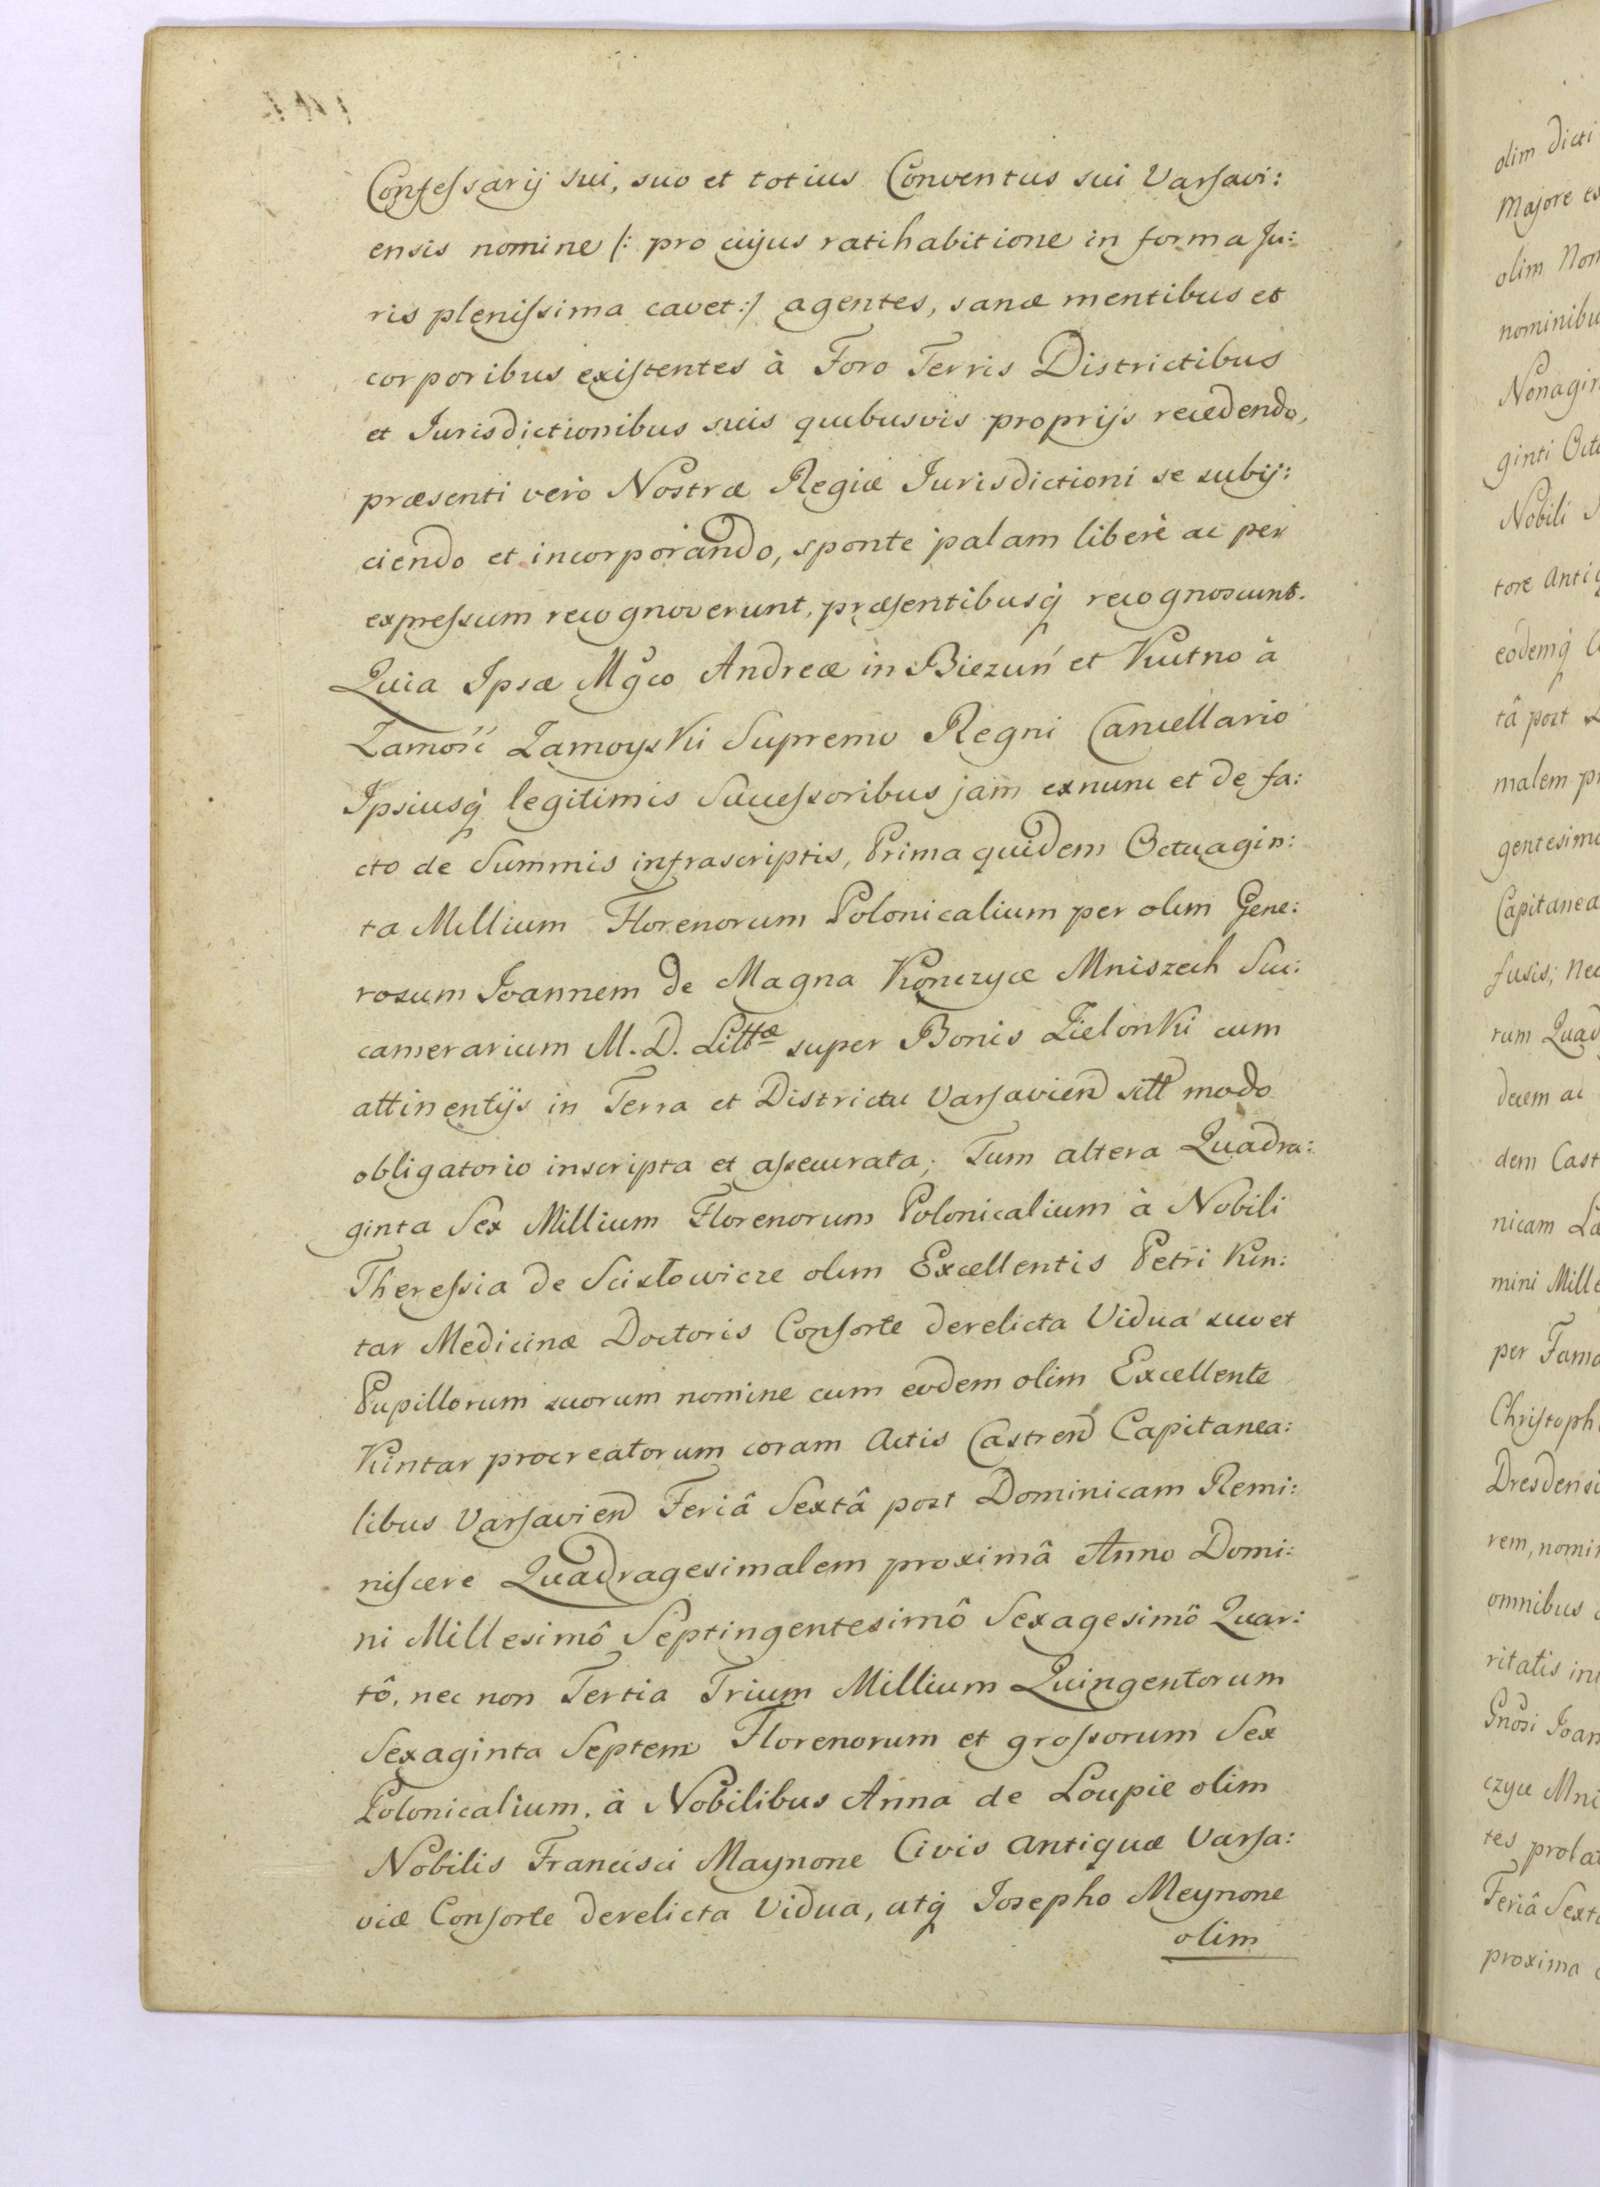 Confessarij sui, suo et totius Conventus sui Varsavi:
ensis nomine /: pro cujus ratihabitione in forma Ju:
ris plenissima cavet :/ agentes, sanæ mentibus et
corporibus existentes à Foro Terris Districtibus
et Jurisdictionibus suis quibusvis proprijs recedendo,
præsenti verò Nostræ Regiæ Jurisdictioni se subij:
ciendo et incorporando, sponte palam liberè ac per
expressum recognoverunt, præsentibusq́ recognoscunt.
Quia Ipsæ Mg̃co Andreæ in Biezuń et Kutno à
Zamość Zamoyski Supremo Regni Cancellario
Ipsiusq́ legitimis Successoribus jam exnunc et de fa:
cto de Summis infrascriptis, Prima quidem Octuagin:
ta Millium Florenorum Polonicalium per olim Gene:
rosum Joannem de Magna Konczyce Mniszech Suc:
camerarium M. D. Littæ super Bonis Zielonki cum
attinentijs in Terra et Districtu Varsavień sitt modo
obligatorio inscripta et assecurata; Tum altera Quadra:
ginta Sex Millium Florenorum Polonicalium à Nobili
Theressia de Scisłowicze olim Excellentis Petri Kun:
tar Medicinæ Doctoris Consorte derelicta Vidua suo et
Pupillorum suorum nomine cum eodem olim Excellente
Kuntar procreatorum coram Actis Castreń Capitanea:
libus Varsavień Feriâ Sextâ post Dominicam Remi:
niscere Quadragesimalem proximâ Anno Domi:
ni Millesimô Septingentesimô Sexagesimô Quar:
tô, nec non Tertia Trium Millium Quingentorum
Sexaginta Septem Florenorum et grossorum Sex
Polonicalium, à Nobilibus Anna de Loupie olim
Nobilis Francisci Maynone Civis Antiquæ Varsa:
viæ Consorte derelicta Vidua, atq́ Josepho Meynone
olim
olim dicti
Majore
olim
nominibu
Nonagin
ginti
Nobili
tore
eodemq́
tâ post
malem
gentesimo
Capitanea
fusis; nec
rum Quad
decem ac
dem Cast
nicam
mini Mille
per Fama
Christoph
Dresdensi
rem, nomin
omnibus
ritatis
Gnosi Joan
czyce Mni
tes prolat
Feriâ Sexta
proxima